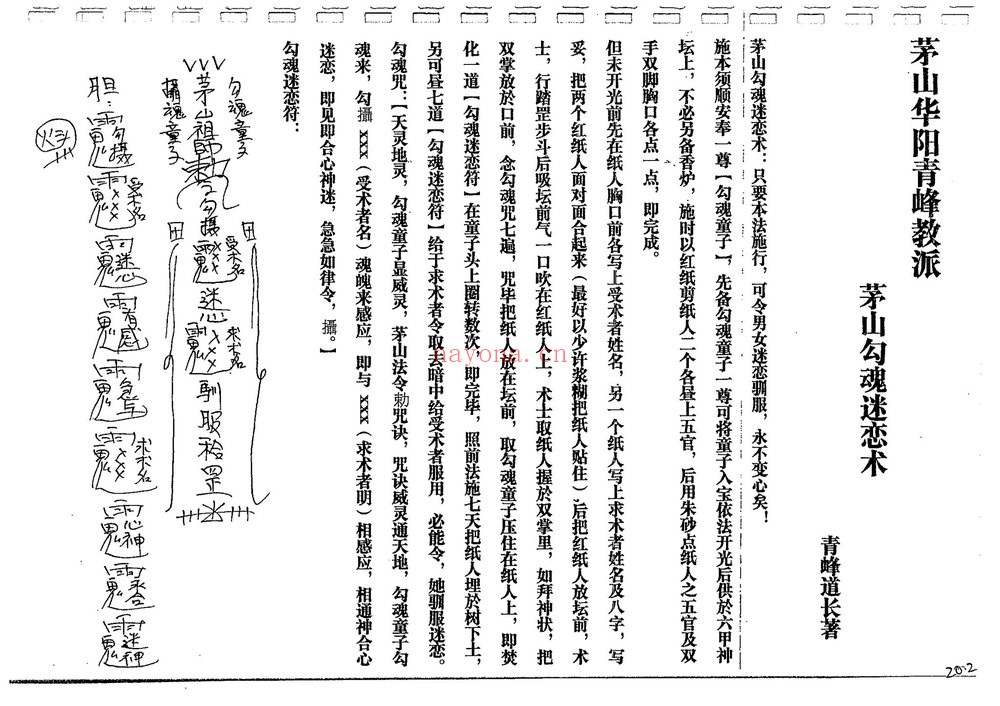 茅山华阳青峰教派
茅山勾魂迷恋术
青峰道长著
茅山勾魂迷恋术：只要本法施行，可令男女迷恋驯服，永不变心矣！
施本须顺安奉一尊【勾魂童子】，先备勾魂童子一尊可将童子入宝依法开光后供於六甲神
坛上，不必另备香炉，施时以红纸剪纸人二个各昼上五官，后用朱砂点纸人之五官及双
手双脚胸口各点一点，即完成。
但未开光前先在纸人胸口前各写上受术者姓名，另一个纸人写上求术者姓名及八字，写
妥，把两个红纸人面对面合起来（最好以少许浆糊把纸人贴住），后把红纸人放坛前，术
士，行踏罡步斗后吸坛前气一口吹在红纸人上，术士取纸人握於双掌里，如拜神状，把
双掌放於口前，念勾魂咒七遍，咒毕把纸人放在坛前，取勾魂童子压住在纸人上，即焚
化一道【勾魂迷恋符】在童子头上圈转数次，即完毕，照前法施七天把纸人埋於树下土，
另可昼七道【勾魂迷恋符】给于求术者令取去暗中给受术者服用，必能令，她驯服迷恋。
勾魂咒：【天灵地灵，勾魂童子显威灵，茅山法令勅咒诀，咒诀威灵通天地，勾魂童子勾
魂来，勾攝 xxx（受术者名）魂魄来感应，即与 xxx（求术者明）相感应，相通神合心
迷恋，即见即合心神迷，急急如律令，攝。】
勾魂迷恋符：
勾魂童子
茅山祖師勅令
攝魂童子
勾攝
受术名
xxx
迷恋
求术名
xxx
馴服
罡
胆：
勾攝
受术名
xxx
迷恋
有感
急与
求术名
xxx
心神
合
迷神
nayona.cn
20.2